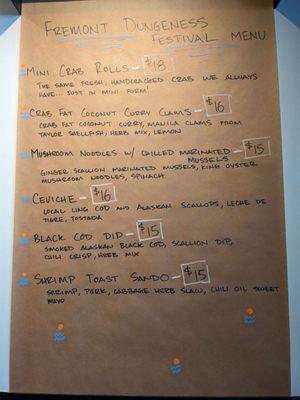 FREMONT DUNGENESS
FESTIVAL MENU
MINI CRAB ROLLS - $18
THE SAME FRESH, HANDCRACKED CRAB WE ALWAYS
HAVE... JUST IN MINI FORM!
CRAB FAT COCONUT CURRY CLAMS - $16
CRAB FAT COCONUT CURRY, MANILA CLAMS FROM
TAYLOR SHELLFISH, HERB MIX, LEMON
MUSHROOM NOODLES W/ CHILLED MARINATED - $15
MUSSELS
GINGER SCALLION MARINATED MUSSELS, KING OYSTER
MUSHROOM NOODLES, SPINACH
CEVICHE - $16
LOCAL LING COD AND ALASKAN SCALLOPS, LECHE DE
TIGRE, TOSTADA
BLACK COD DIP - $15
SMOKED ALASKAN BLACK COD, SCALLION DIP,
CHILI CRISP, HERB MIX
SHRIMP TOAST SANDO - $15
SHRIMP, PORK, CABBAGE HERB SLAW, CHILI OIL SWEET
MAYO